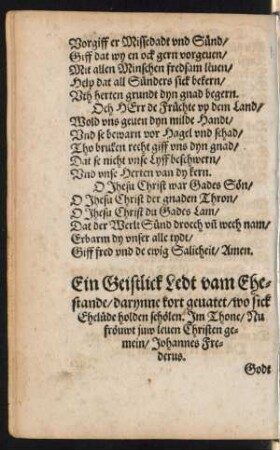 Vorgiff er Missedadt vnd Sünd/
Giff dat wy en ock gern vorgeuen/
Mit allen Minschen fredsam lëuen/
Help dat all Sünders sick bekern/
Vth herten grundt dyn gnad begern.
Och HErr de Früchte vp dem Land/
Wold vns geuen dyn milde Handt/
Vnd se bewarn vor Hagel vnd schad/
Tho bruken recht giff vns dyn gnad/
Dat se nicht vnse Lyff beschwern/
Vnd vnse Herten van dy kern.
O Jhesu Christ war Gades Sön/
O Jhesu Christ der gnaden Thron/
O Jhesu Christ du Gades Lam/
Dat der Werlt Sünd droech vñ wech nam/
Erbarm dy vnser alle tydt/
Giff fred vnd de ewig Salicheit/ Amen.
Ein Geistlick Ledt vam Ehe-
stande/darynne kort geuatet/wo sick
Ehelüde holden schölen. Jm Thone/ Nu
fröuwt juw leuen Christen ge-
mein/ Johannes Fre-
derus.
Godt